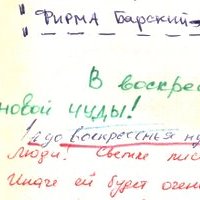 "ФИРМА Барский-
В воскрес
новой чуды!
до воскресенья ну
Люди! Светик пис
Иначе ей будет очень